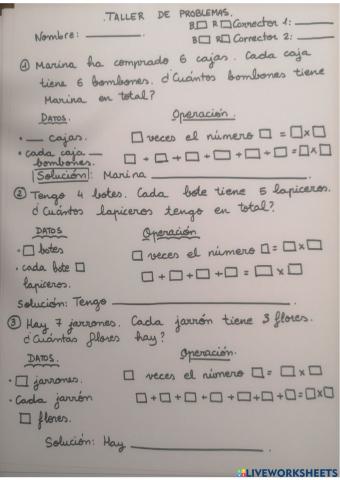 TALLER DE PROBLEMAS.
Nombre: ________. B□ R□ Corrector 1: ________
B□ R□ Corrector 2: ________
① Marina ha comprado 6 cajas. Cada caja
tiene 6 bombones. ¿Cuántos bombones tiene
Marina en total?
DATOS. Operación.
• ___ cajas. □ veces el número □ = □x□
• cada caja ___ □ + □ + □ + □ + □ + □ = □x□
bombones.
Solución: Marina ________
② Tengo 4 botes. Cada bote tiene 5 lapiceros.
¿Cuántos lapiceros tengo en total?
DATOS Operación
• □ botes □ veces el número □ = □x□
• cada bote □ □ + □ + □ + □ = □ x □
lapiceros.
Solución: Tengo ________
③ Hay 7 jarrones. Cada jarrón tiene 3 flores.
¿Cuántas flores hay?
DATOS. Operación.
• □ jarrones. □ veces el número □ = □ x □
• Cada jarrón □ + □ + □ + □ + □ + □ + □ = □x□
□ flores.
Solución: Hay ________
LIVEWORKSHEETS